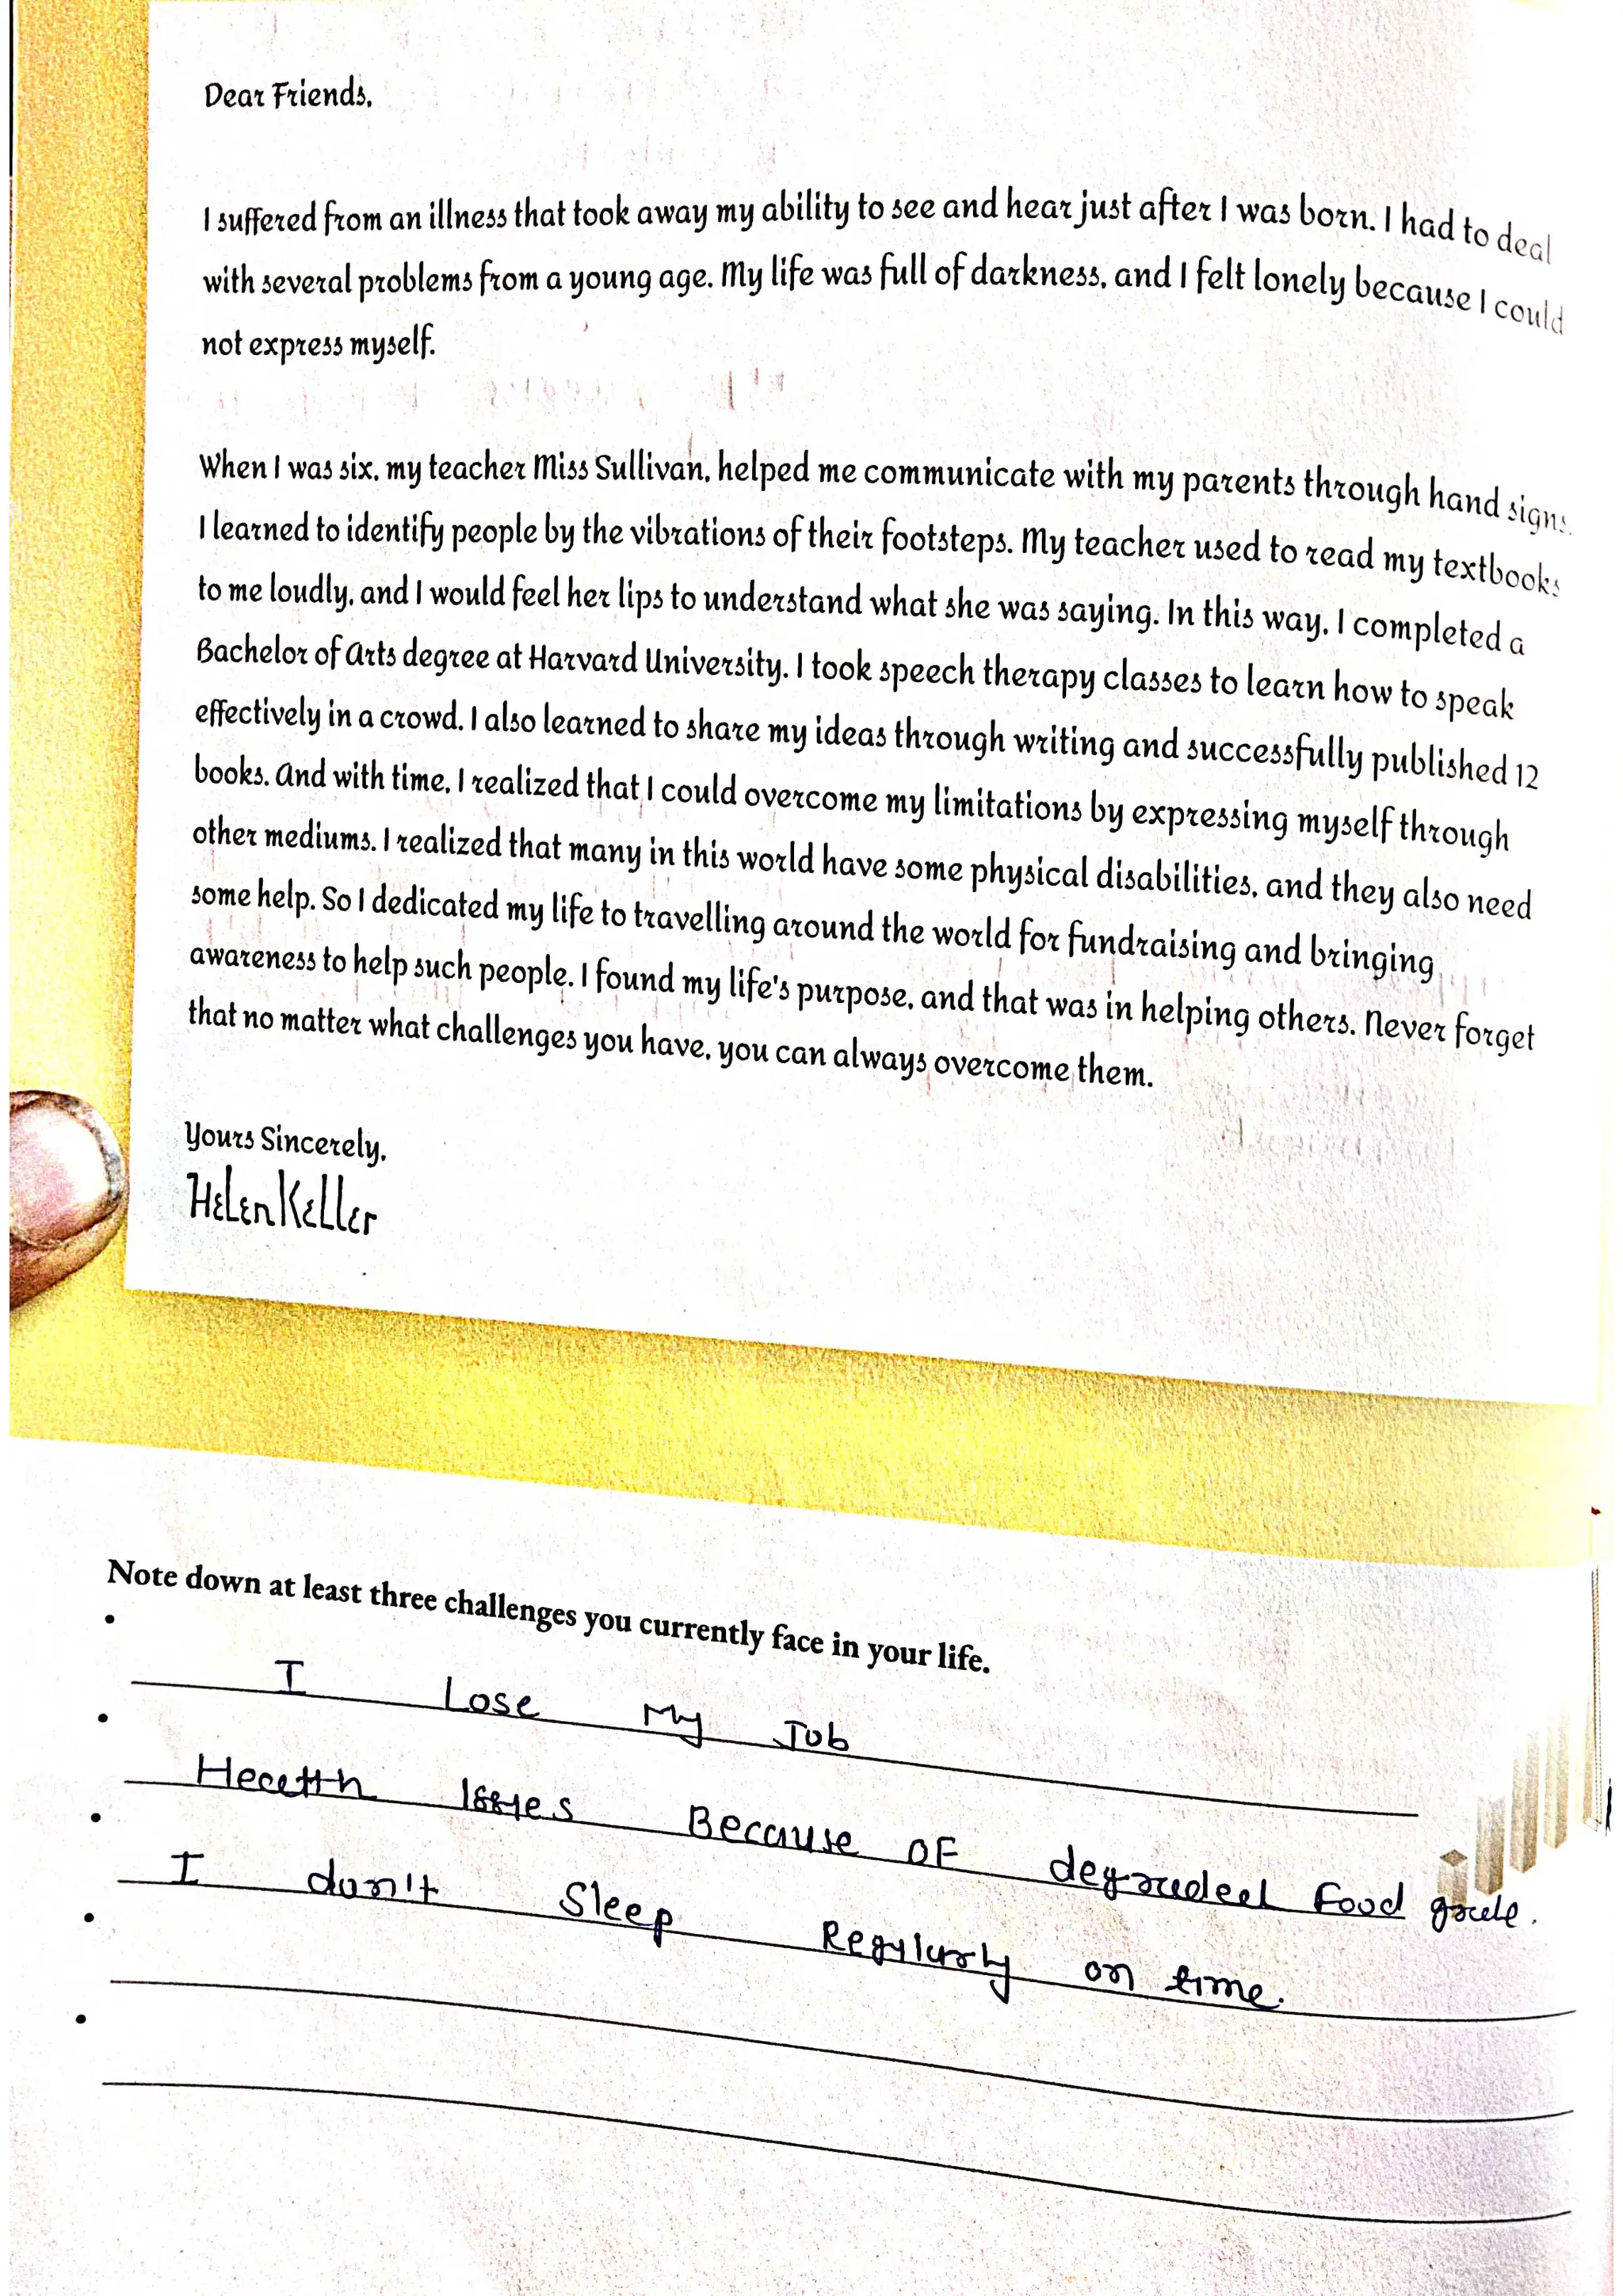 Dear Friends,
I suffered from an illness that took away my ability to see and hear just after I was born. I had to deal
with several problems from a young age. My life was full of darkness, and I felt lonely because I could
not express myself.
When I was six, my teacher Miss Sullivan, helped me communicate with my parents through hand signs.
I learned to identify people by the vibrations of their footsteps. My teacher used to read my textbooks
to me loudly, and I would feel her lips to understand what she was saying. In this way, I completed a
Bachelor of Arts degree at Harvard University. I took speech therapy classes to learn how to speak
effectively in a crowd. I also learned to share my ideas through writing and successfully published 12
books. And with time, I realized that I could overcome my limitations by expressing myself through
other mediums. I realized that many in this world have some physical disabilities, and they also need
some help. So I dedicated my life to travelling around the world for fundraising and bringing
awareness to help such people. I found my life's purpose, and that was in helping others. Never forget
that no matter what challenges you have, you can always overcome them.
Yours Sincerely,
Helen Keller
Note down at least three challenges you currently face in your life.
• I Lose My Job
• Health Issues Because OF degraded Food grade.
• I don't Sleep Regularly on time.
•
•